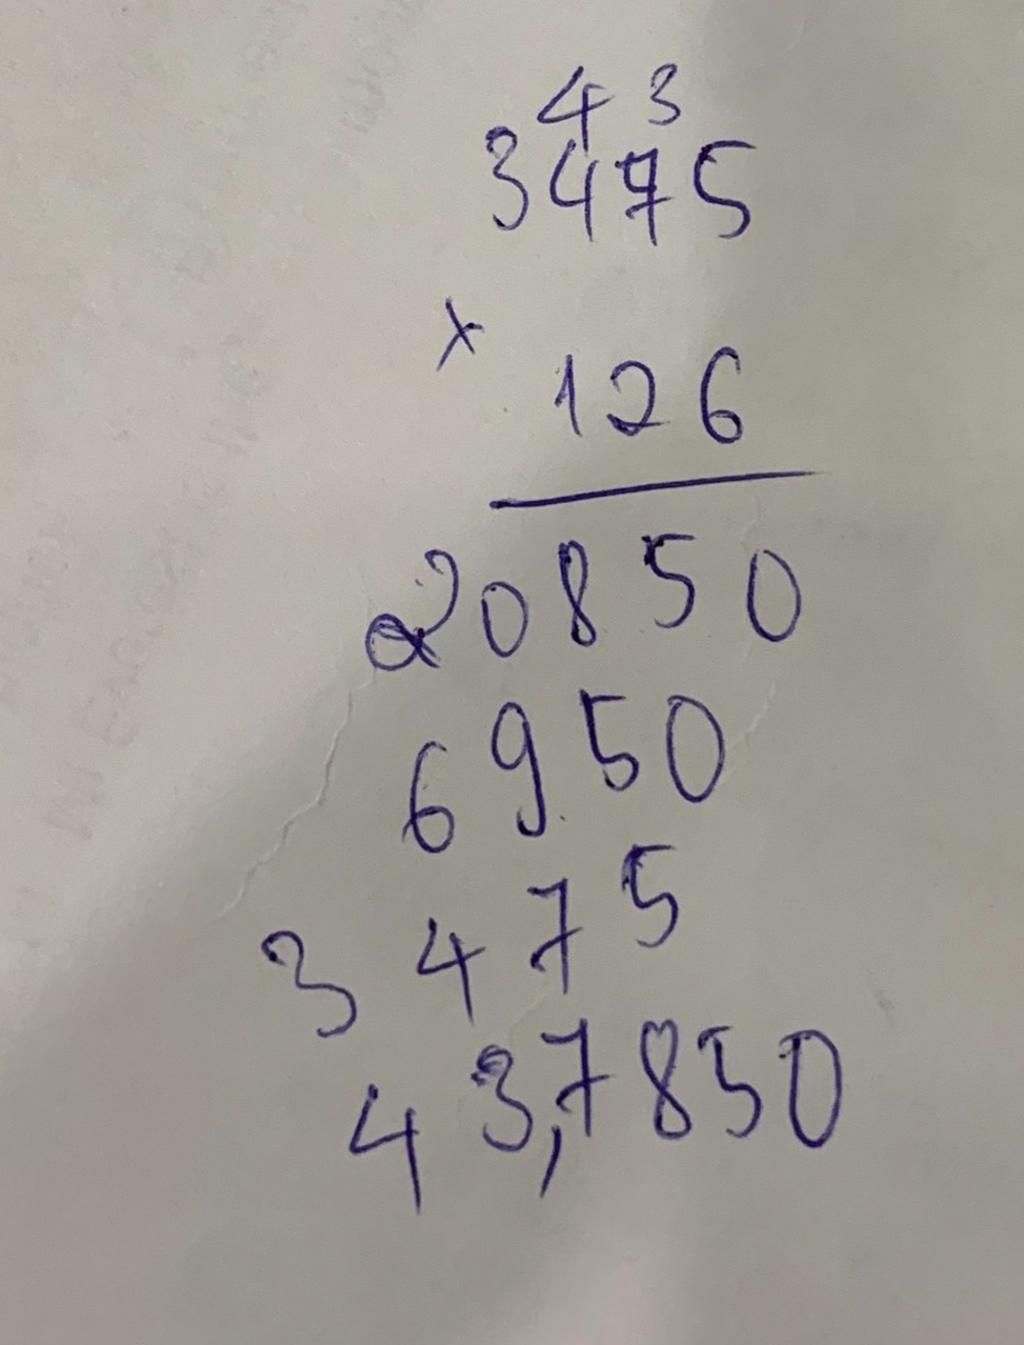 4 3
3475
x
126
20850
6950
3475
43,7850